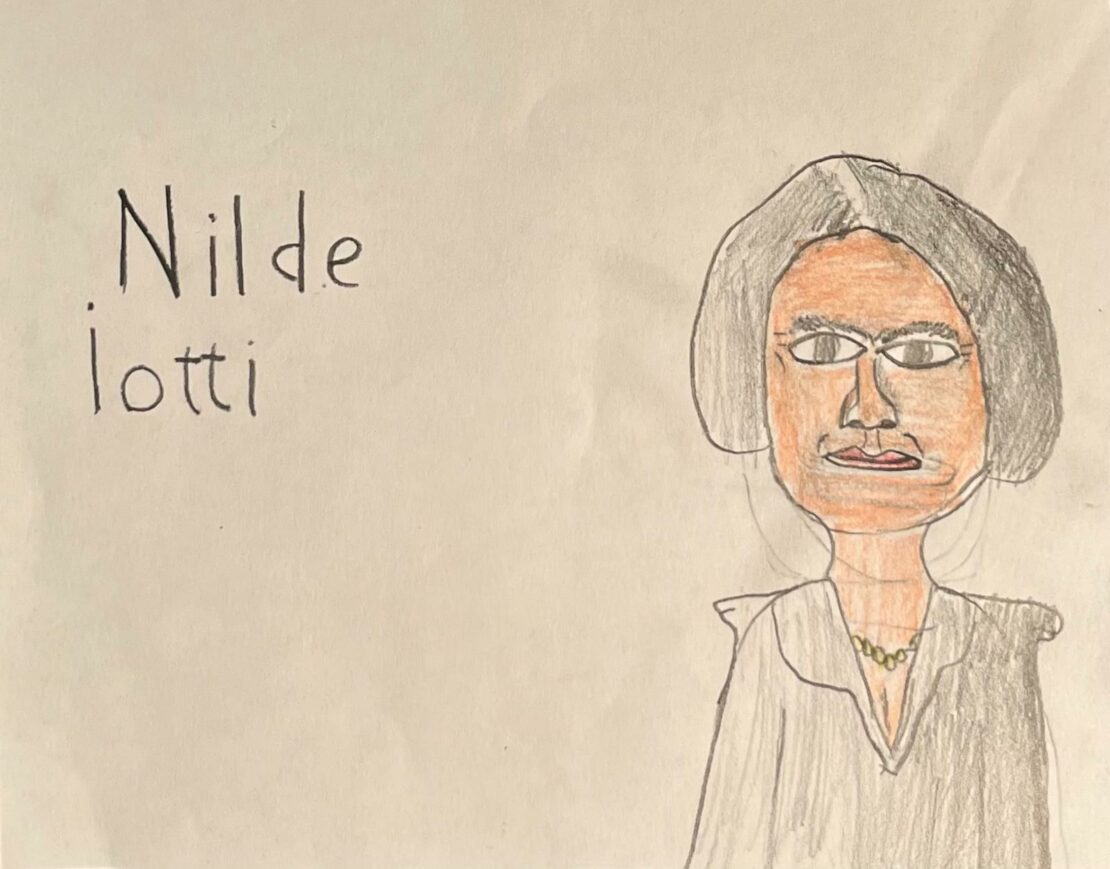 Nilde
iotti